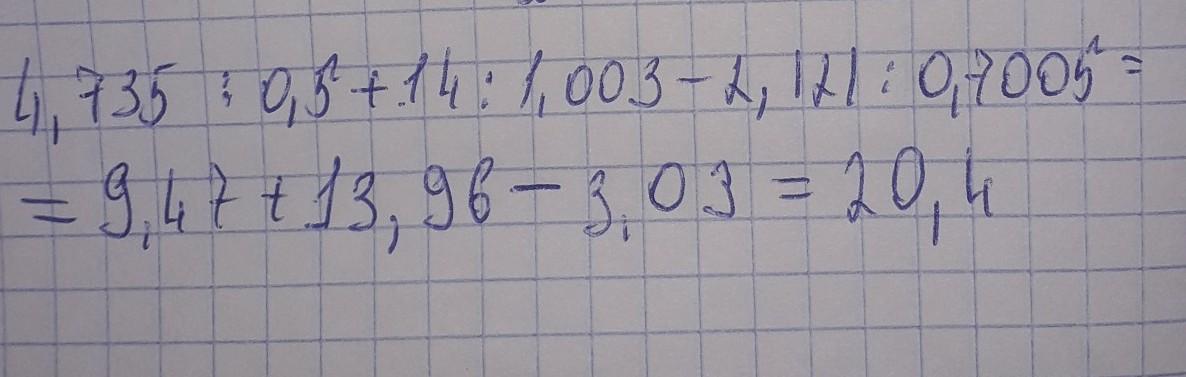 4,735 : 0,5 + 14 : 1,003 - 2,121 : 0,7005 =
= 9,47 + 13,96 - 3,03 = 20,4